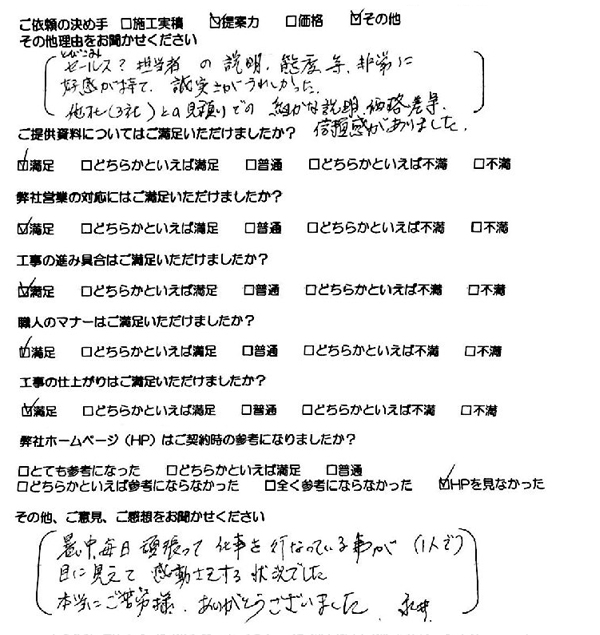 ご依頼の決め手 □施工実績 ☑提案力 □価格 ☑その他
その他理由をお聞かせください
とびこみ
セールス？担当者の説明、態度等、非常に
好感が持て、誠実さがうれしかった。
他社(3社)との見積りでの細かな説明、価格差等、
信頼感がありました。
ご提供資料についてはご満足いただけましたか？
☑満足 □どちらかといえば満足 □普通 □どちらかといえば不満 □不満
弊社営業の対応にはご満足いただけましたか？
☑満足 □どちらかといえば満足 □普通 □どちらかといえば不満 □不満
工事の進み具合はご満足いただけましたか？
☑満足 □どちらかといえば満足 □普通 □どちらかといえば不満 □不満
職人のマナーはご満足いただけましたか？
☑満足 □どちらかといえば満足 □普通 □どちらかといえば不満 □不満
工事の仕上がりはご満足いただけましたか？
☑満足 □どちらかといえば満足 □普通 □どちらかといえば不満 □不満
弊社ホームページ（HP）はご契約時の参考になりましたか？
□とても参考になった □どちらかといえば満足 □普通
□どちらかといえば参考にならなかった □全く参考にならなかった ☑HPを見なかった
その他、ご意見、ご感想をお聞かせください
暑い中毎日頑張って仕事を行なっている事が(1人で)
目に見えて感動さえする状況でした
本当にご苦労様、ありがとうございました。